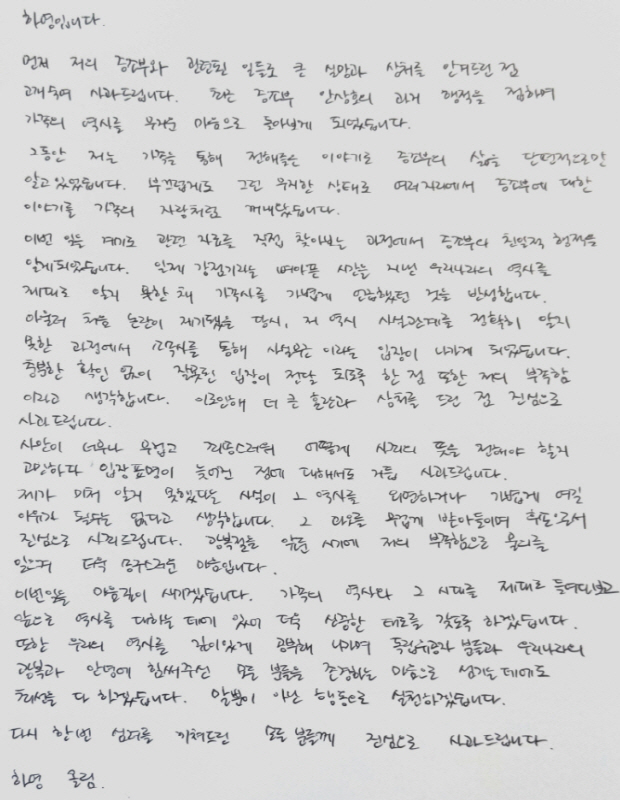 하영입니다.
먼저 저의 증조부와 관련된 일들로 큰 실망과 상처를 안겨드린 점
고개숙여 사과드립니다. 최근 증조부 안상호의 과거 행적을 접하며
가족의 역사를 무거운 마음으로 돌아보게 되었습니다.
그동안 저는 가족을 통해 전해들은 이야기로 증조부의 삶을 단편적으로만
알고 있었습니다. 부끄럽게도 그런 무지한 상태로 여러자리에서 증조부에 대한
이야기를 가족의 자랑처럼 꺼내왔습니다.
이번 일을 계기로 관련 자료를 직접 찾아보는 과정에서 증조부의 친일적 행적을
알게되었습니다. 일제 강점기라는 뼈아픈 시간을 지난 우리나라의 역사를
제대로 알지 못한 채 가족사를 가볍게 언급했던 것을 반성합니다.
아울러 처음 논란이 제기됐을 당시, 저 역시 사실관계를 정확히 알지
못한 과정에서 소속사를 통해 사실무근 이라는 입장이 나가게 되었습니다.
충분한 확인 없이 잘못된 입장이 전달 되도록 한 점 또한 저의 부족함
이라고 생각합니다. 이로인해 더 큰 혼란과 상처를 드린 점 진심으로
사과드립니다.
사안이 너무나 무겁고 죄송스러워 어떻게 사죄의 뜻을 전해야 할지
고민하다 입장표명이 늦어진 점에 대해서도 거듭 사과드립니다.
제가 미처 알지 못했다는 사실이 그 역사를 외면하거나 가볍게 여길
이유가 될수는 없다고 생각합니다. 그 과오를 무겁게 받아들이며 후손으로서
진심으로 사죄드립니다. 광복절을 앞둔 시기에 저의 부족함으로 물의를
일으켜 더욱 송구스러운 마음입니다.
이번일을 마음깊이 새기겠습니다. 가족의 역사와 그 시대를 제대로 들여다보고
앞으로 역사를 대하는 데에 있어 더욱 신중한 태도를 갖도록 하겠습니다.
또한 우리의 역사를 깊이있게 공부해 나가며 독립유공자 분들과 우리나라의
광복과 안녕에 힘써주신 모든 분들을 존경하는 마음으로 섬기는데에도
최선을 다 하겠습니다. 말뿐이 아닌 행동으로 실천하겠습니다.
다시 한번 심려를 끼쳐드린 모든 분들께 진심으로 사과드립니다.
하영 올림.